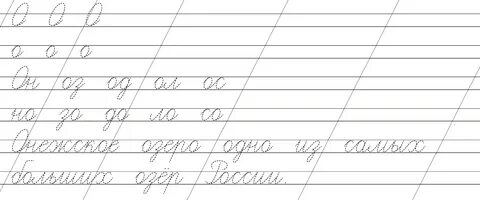 О О О
о о о
Он оз од ол ос
но зо до ло со
Онежское озеро одно из самых
больших озёр России.